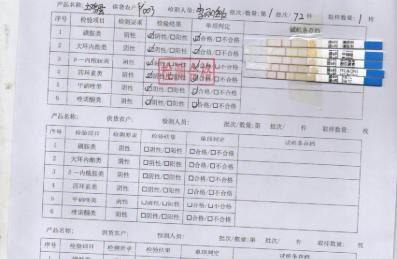 产品名称: 供货农户 检测人员: 批次/数量:第1批次/72件 取样数量:1枚
序号 检验项目 检测要求 检验结果 单项判定 试纸条存档
1 磺胺类 阴性 ☑阴性/□阳性 ☑合格/□不合格
2 大环内酯类 阴性 ☑阴性/□阳性 ☑合格/□不合格
3 β-内酰胺类 阴性 ☑阴性/□阳性 ☑合格/□不合格
4 四环素类 阴性 ☑阴性/□阳性 ☑合格/□不合格
5 甲硝唑类 阴性 ☑阴性/□阳性 ☑合格/□不合格
6 喹诺酮类 阴性 ☑阴性/□阳性 ☑合格/□不合格
产品名称: 供货农户: 检测人员: 批次/数量:第 批次/ 件 取样数量: 枚
序号 检验项目 检测要求 检验结果 单项判定 试纸条存档
1 磺胺类 阴性 □阴性/□阳性 □合格/□不合格
2 大环内酯类 阴性 □阴性/□阳性 □合格/□不合格
3 β-内酰胺类 阴性 □阴性/□阳性 □合格/□不合格
4 四环素类 阴性 □阴性/□阳性 □合格/□不合格
5 甲硝唑类 阴性 □阴性/□阳性 □合格/□不合格
6 喹诺酮类 阴性 □阴性/□阳性 □合格/□不合格
产品名称: 供货农户: 检测人员: 批次/数量:第 批次/ 件 取样数量: 枚
序号 检验项目 检测要求 检验结果 单项判定 试纸条存档